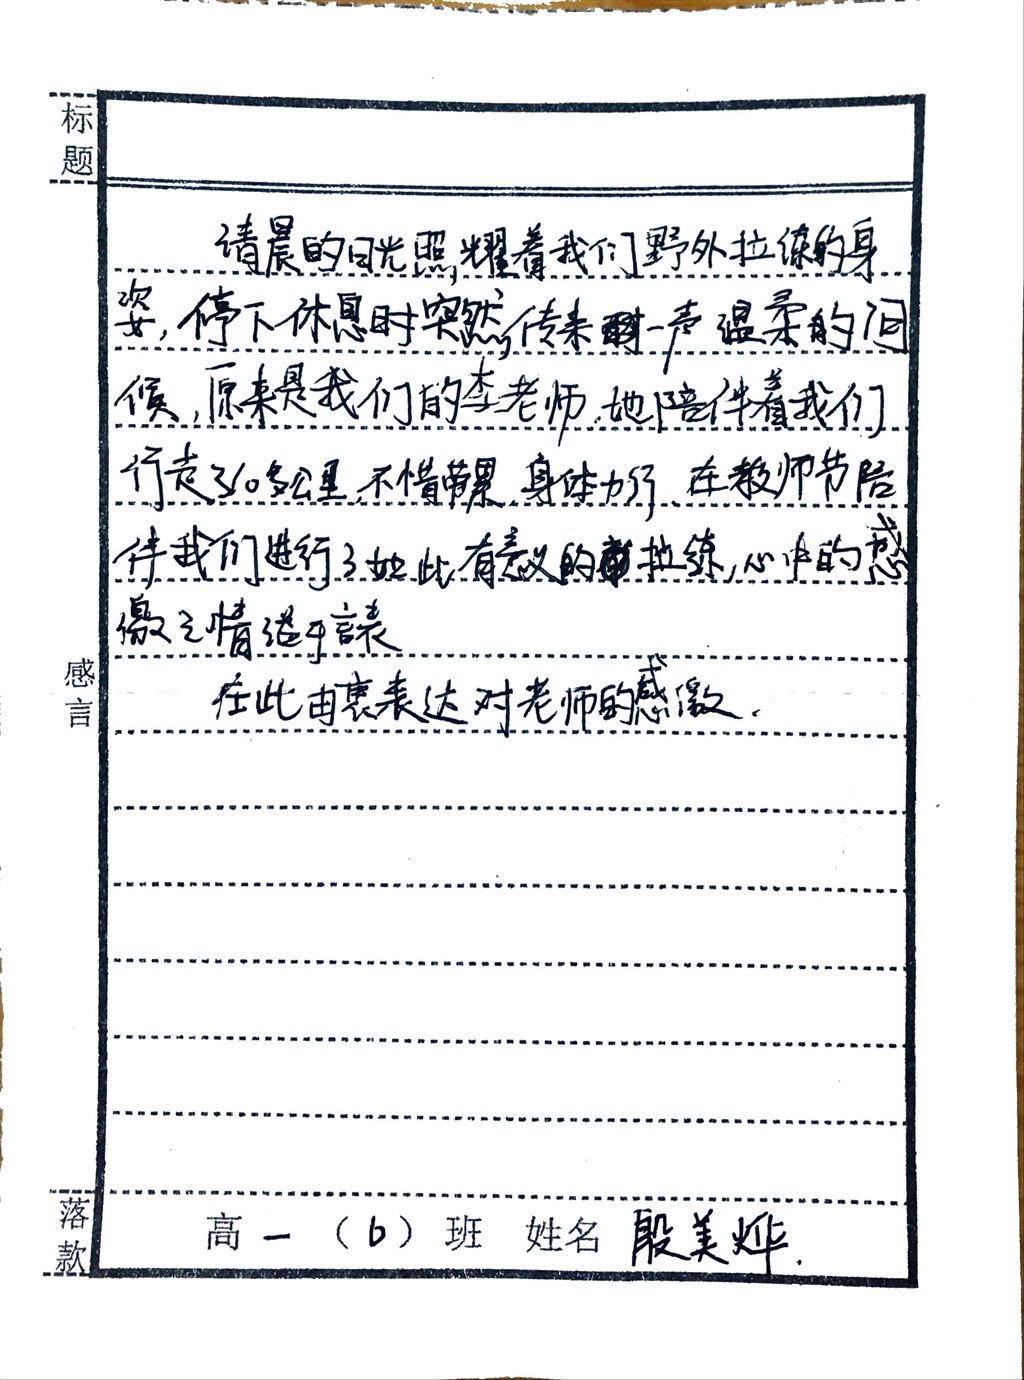 标题
清晨的日光照耀着我们野外拉练的身
姿，停下休息时突然，传来一声温柔的问
候，原来是我们的李老师，她陪伴着我们
行走了10多公里，不惜劳累，身体力行，在教师节陪
伴我们进行了如此有意义的拉练，心中的感
激之情溢于言表
感言
在此由衷表达对老师的感激．
落款
高一（6）班 姓名 殷美烨．